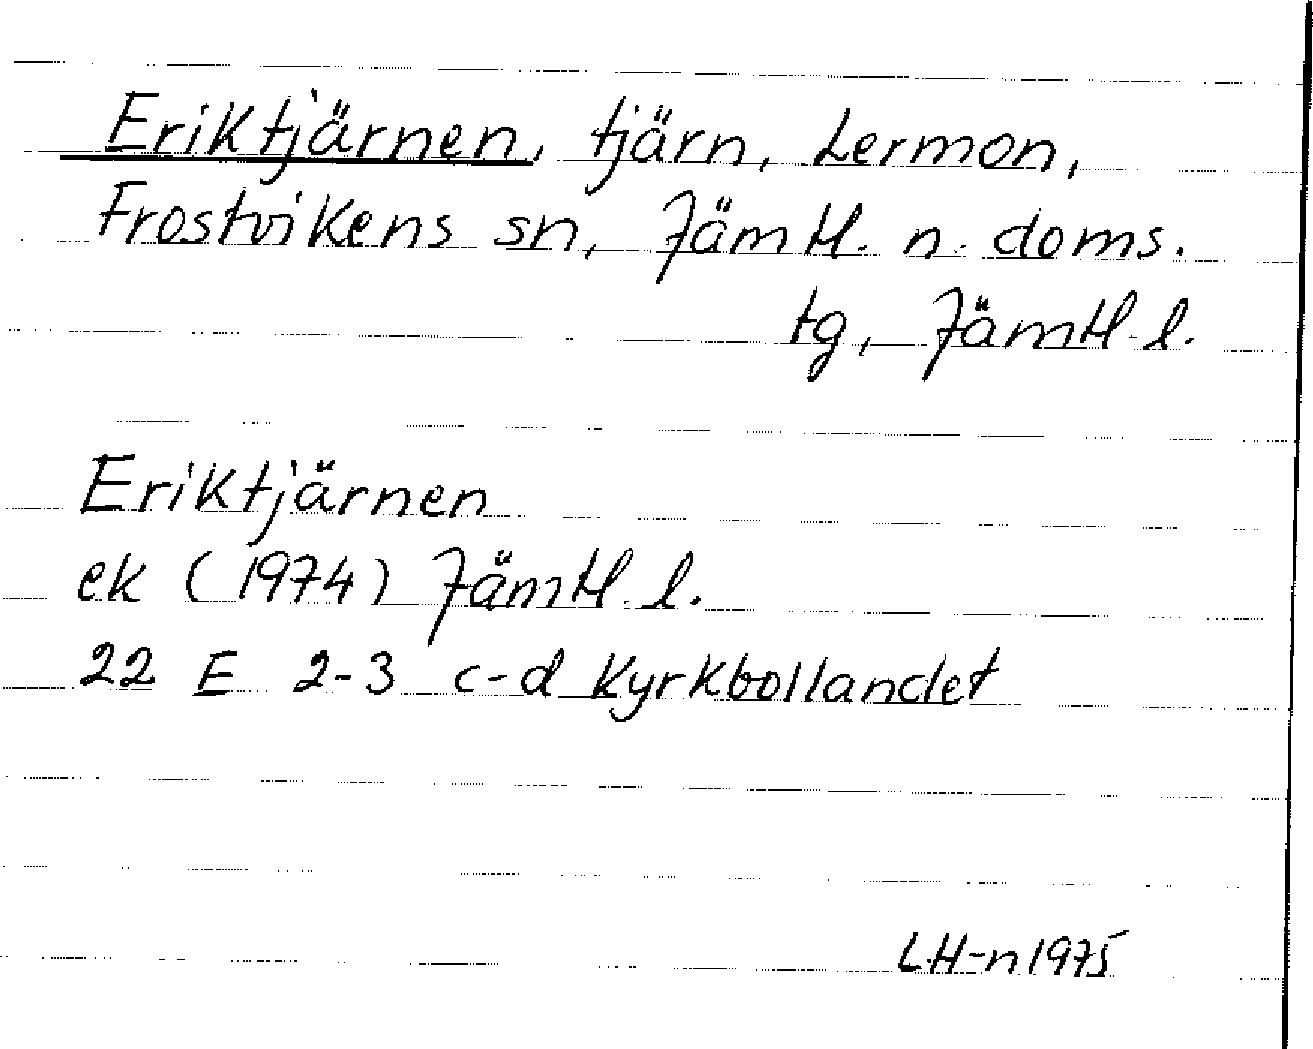 Eriktjärnen, tjärn, Lermon,
Frostvikens sn, Jämtl. n. doms.
tg, Jämtl. l.
Eriktjärnen
ek (1974) Jämtl. l.
22 E 2-3 c-d Kyrkbollandet
LH-n 1975